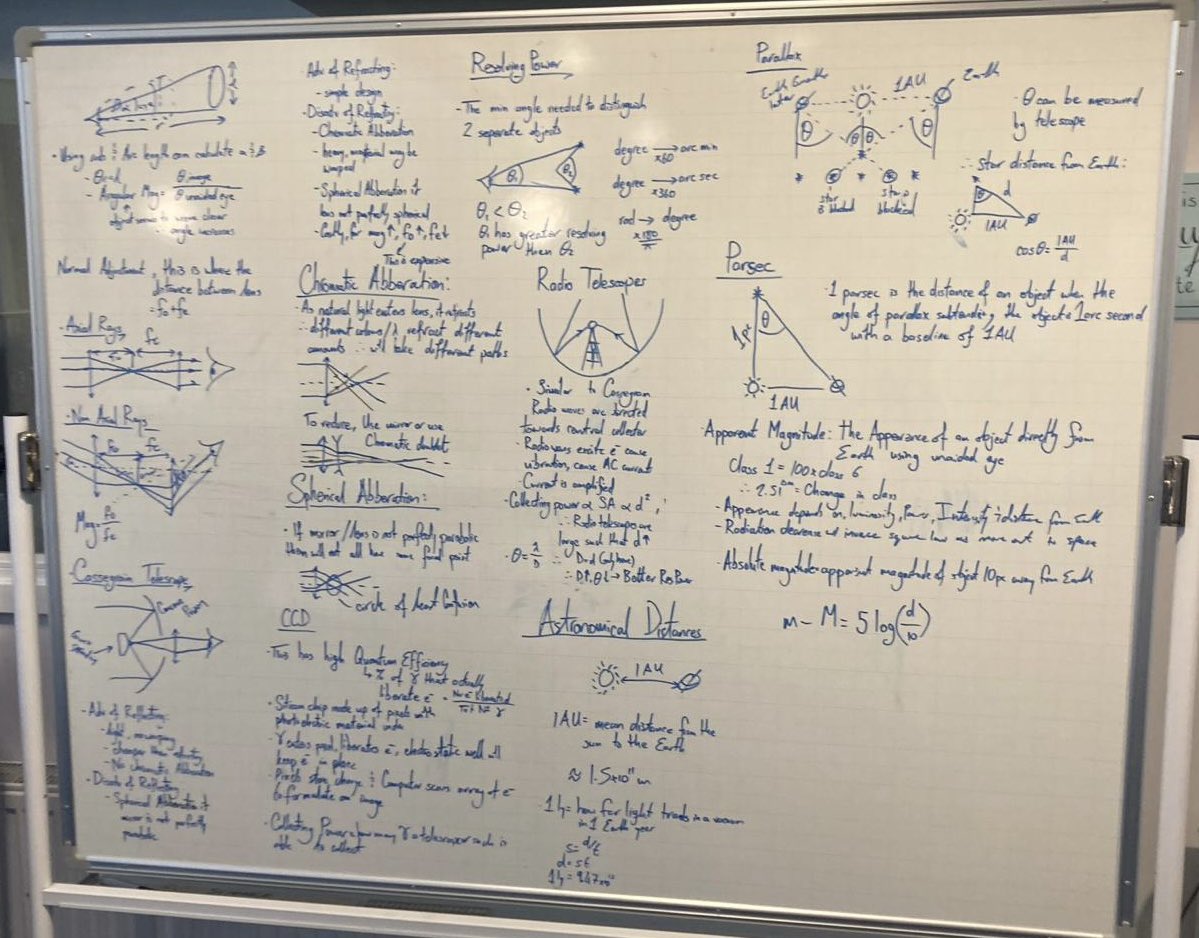 d
· Using sub & Arc length can calculate
- Angular Mag = θ image
θ unaided eye
object seems to
angle increases
Normal Adjustment, this is where the
distance between lens
= fo + fe
- Axial Rays
fo fe
- Non Axial Rays
fo fe
Mag = fo
fe
- Cassegrain Telescope
- Adv of Reflecting:
- light, no warping
- cheaper than refracting
- No Chromatic Abberation
- Disadv of Reflecting
- Spherical Abberation if
mirror is not perfectly
parabolic
Adv of Refracting:
- simple design
- Disadv of Refracting:
- Chromatic Abberation
- heavy, material may be
warped
- Spherical Abberation if
lens not perfectly spherical
- Costly, for mag↑, fo↑, fe↓
This is expensive
Chromatic Abberation:
- As natural light enters lens, it refracts
∴ different colours/λ refract different
amounts ∴ will take different paths
To reduce, Use mirror or use
Chromatic doublet
Spherical Abberation:
· If mirror/lens is not perfectly parabolic
then will not all have same focal point
circle of least Confusion
CCD
· This has high Quantum Efficiency
↳ % of γ that actually
liberate e⁻ = No e⁻ liberated
Tot Nº γ
· Silicon chip made up of pixels with
photoelectric material inside
· γ enters pixel, liberates e⁻, electrostatic well will
keep e⁻ in place
· Pixels store charge & Computer scans array of e⁻
to formulate an image
· Collecting Power = how many γ a telescope is
able to collect
Resolving Power
- The min angle needed to distinguish
2 separate objects
θ₁ θ₂
degree →×60 arc min
degree →×360 arc sec
rad → degree
×180
π
θ₁ < θ₂
θ₁ has greater resolving
power then θ₂
Radio Telescopes
· Similar to Cassegrain
Radio waves are directed
towards central collector
· Radio waves excite e⁻ cause
vibration, cause AC current
· Current is amplified
- Collecting power ∝ SA ∝ d²,
∴ Radio telescopes are
large such that d↑
· θ = λ
D
∴ D↑, θ↓ → Better Res Power
Astronomical Distances
1AU
1AU = mean distance from the
sun to the Earth
≈ 1.5×10¹¹ m
1 ly = how far light travels in a vacuum
in 1 Earth year
s = d/t
d = st
1 ly =
Parallax
Earth 6 months
later
1AU
Earth
θ θ θ θ
star
B blocked
star
blocked
· θ can be measured
by telescope
∴ Star distance from Earth:
θ d
1AU
cosθ = 1AU
d
Parsec
θ
1AU
· 1 parsec is the distance of an object when the
angle of parallax subtending the object is 1 arc second
with a baseline of 1AU
· Apparent Magnitude: The Appearance of an object directly from
Earth using unaided eye
Class 1 = 100×class 6
∴ 2.51^Δm = Change in class
- Appearance depends on, luminosity, Power, Intensity & distance from Earth
- Radiation decrease w inverse square law as move out in space
- Absolute magnitude = apparent magnitude of object 10pc away from Earth
m - M = 5 log(d/10)